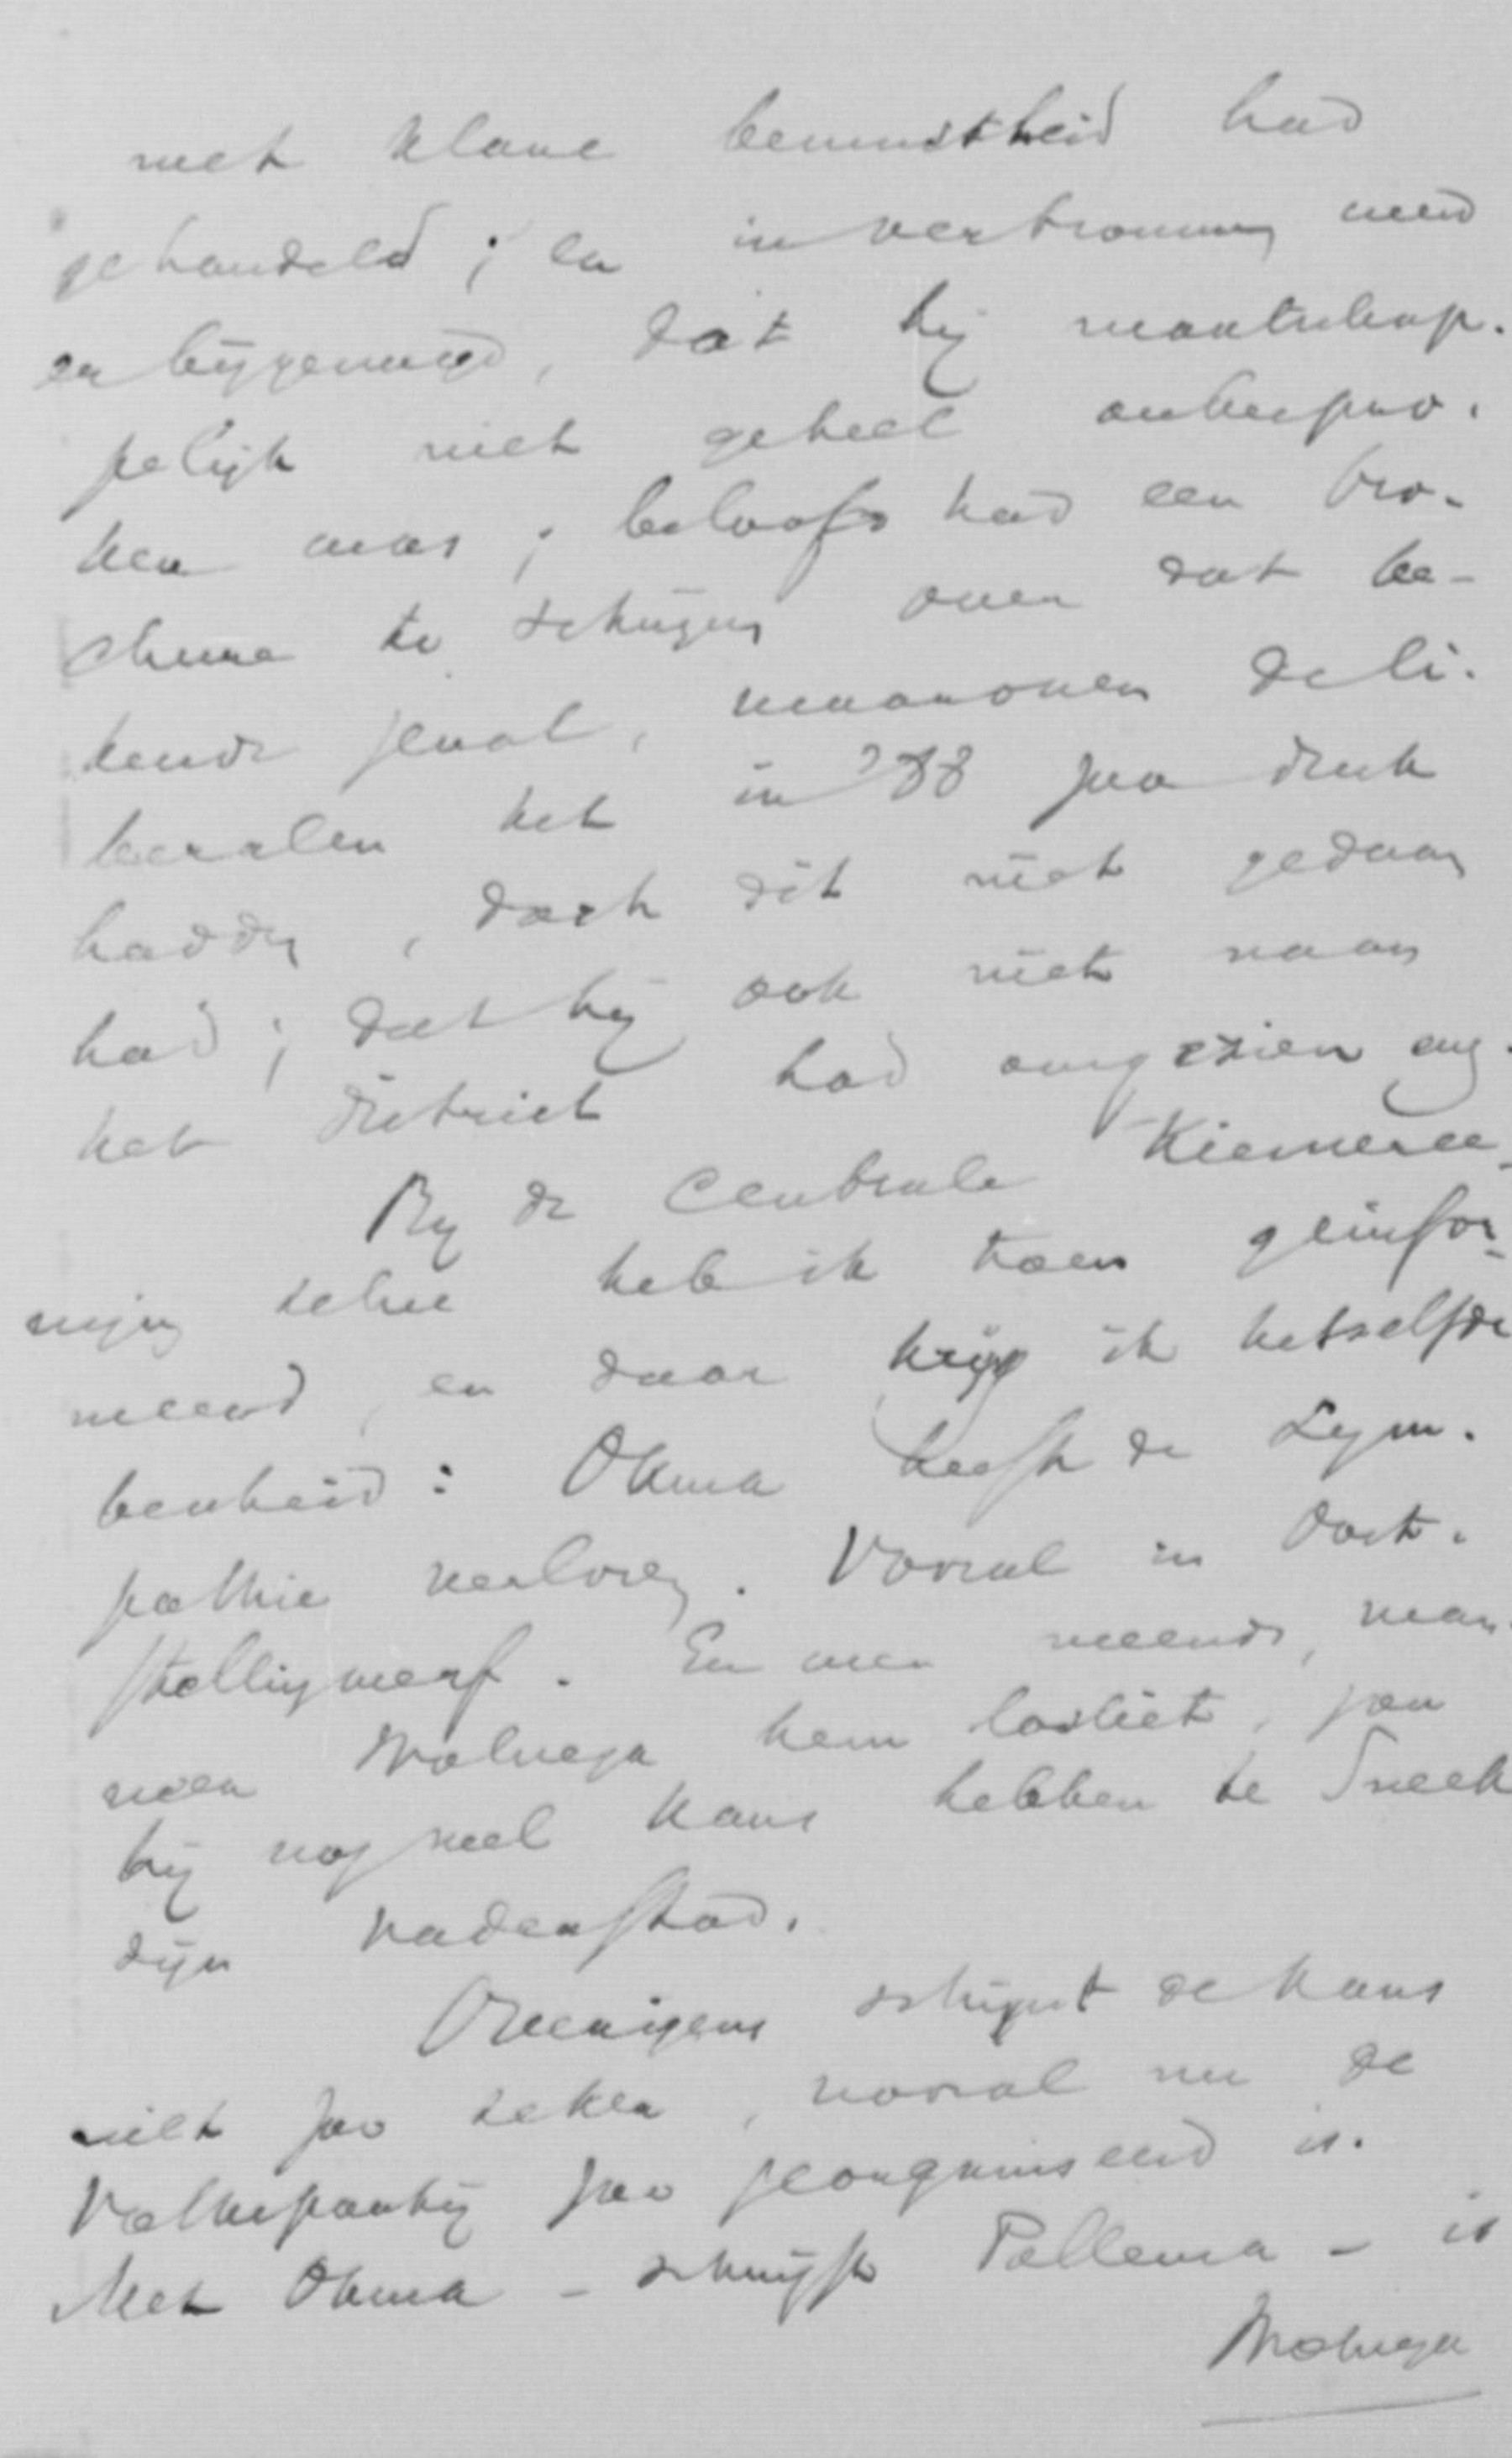 met klare bewustheid had
gehandeld; en in vertrouwen werd
er bijgevoegd, dat hij maatschap-
pelijk niet geheel onbespro-
ken was; beloofd had een bro-
chure te schrijven over dat be-
kende geval, waarover de li-
beralen het in '88 zoo druk
hadden, doch dit niet gedaan
had; dat hij ook niet naar
het district had omgezien enz.
By de Centrale Kiesveree-
niging zelve heb ik toen geinfor-
meerd, en daar krijg ik hetzelfde
bescheid: Okma heeft de Sym-
pathie verloren. Vooral in Oost-
stellingwerf. En men meende, wan-
neer Wolvega hem losliet, zou
hij nog veel kans hebben te Sneek
zijn vaderstad.
Overigens schijnt de kans
niet zoo zeker, vooral nu de
Volkspartij zoo georganiseerd is.
Met Okma - schrijft Pollema - is
Wolvega